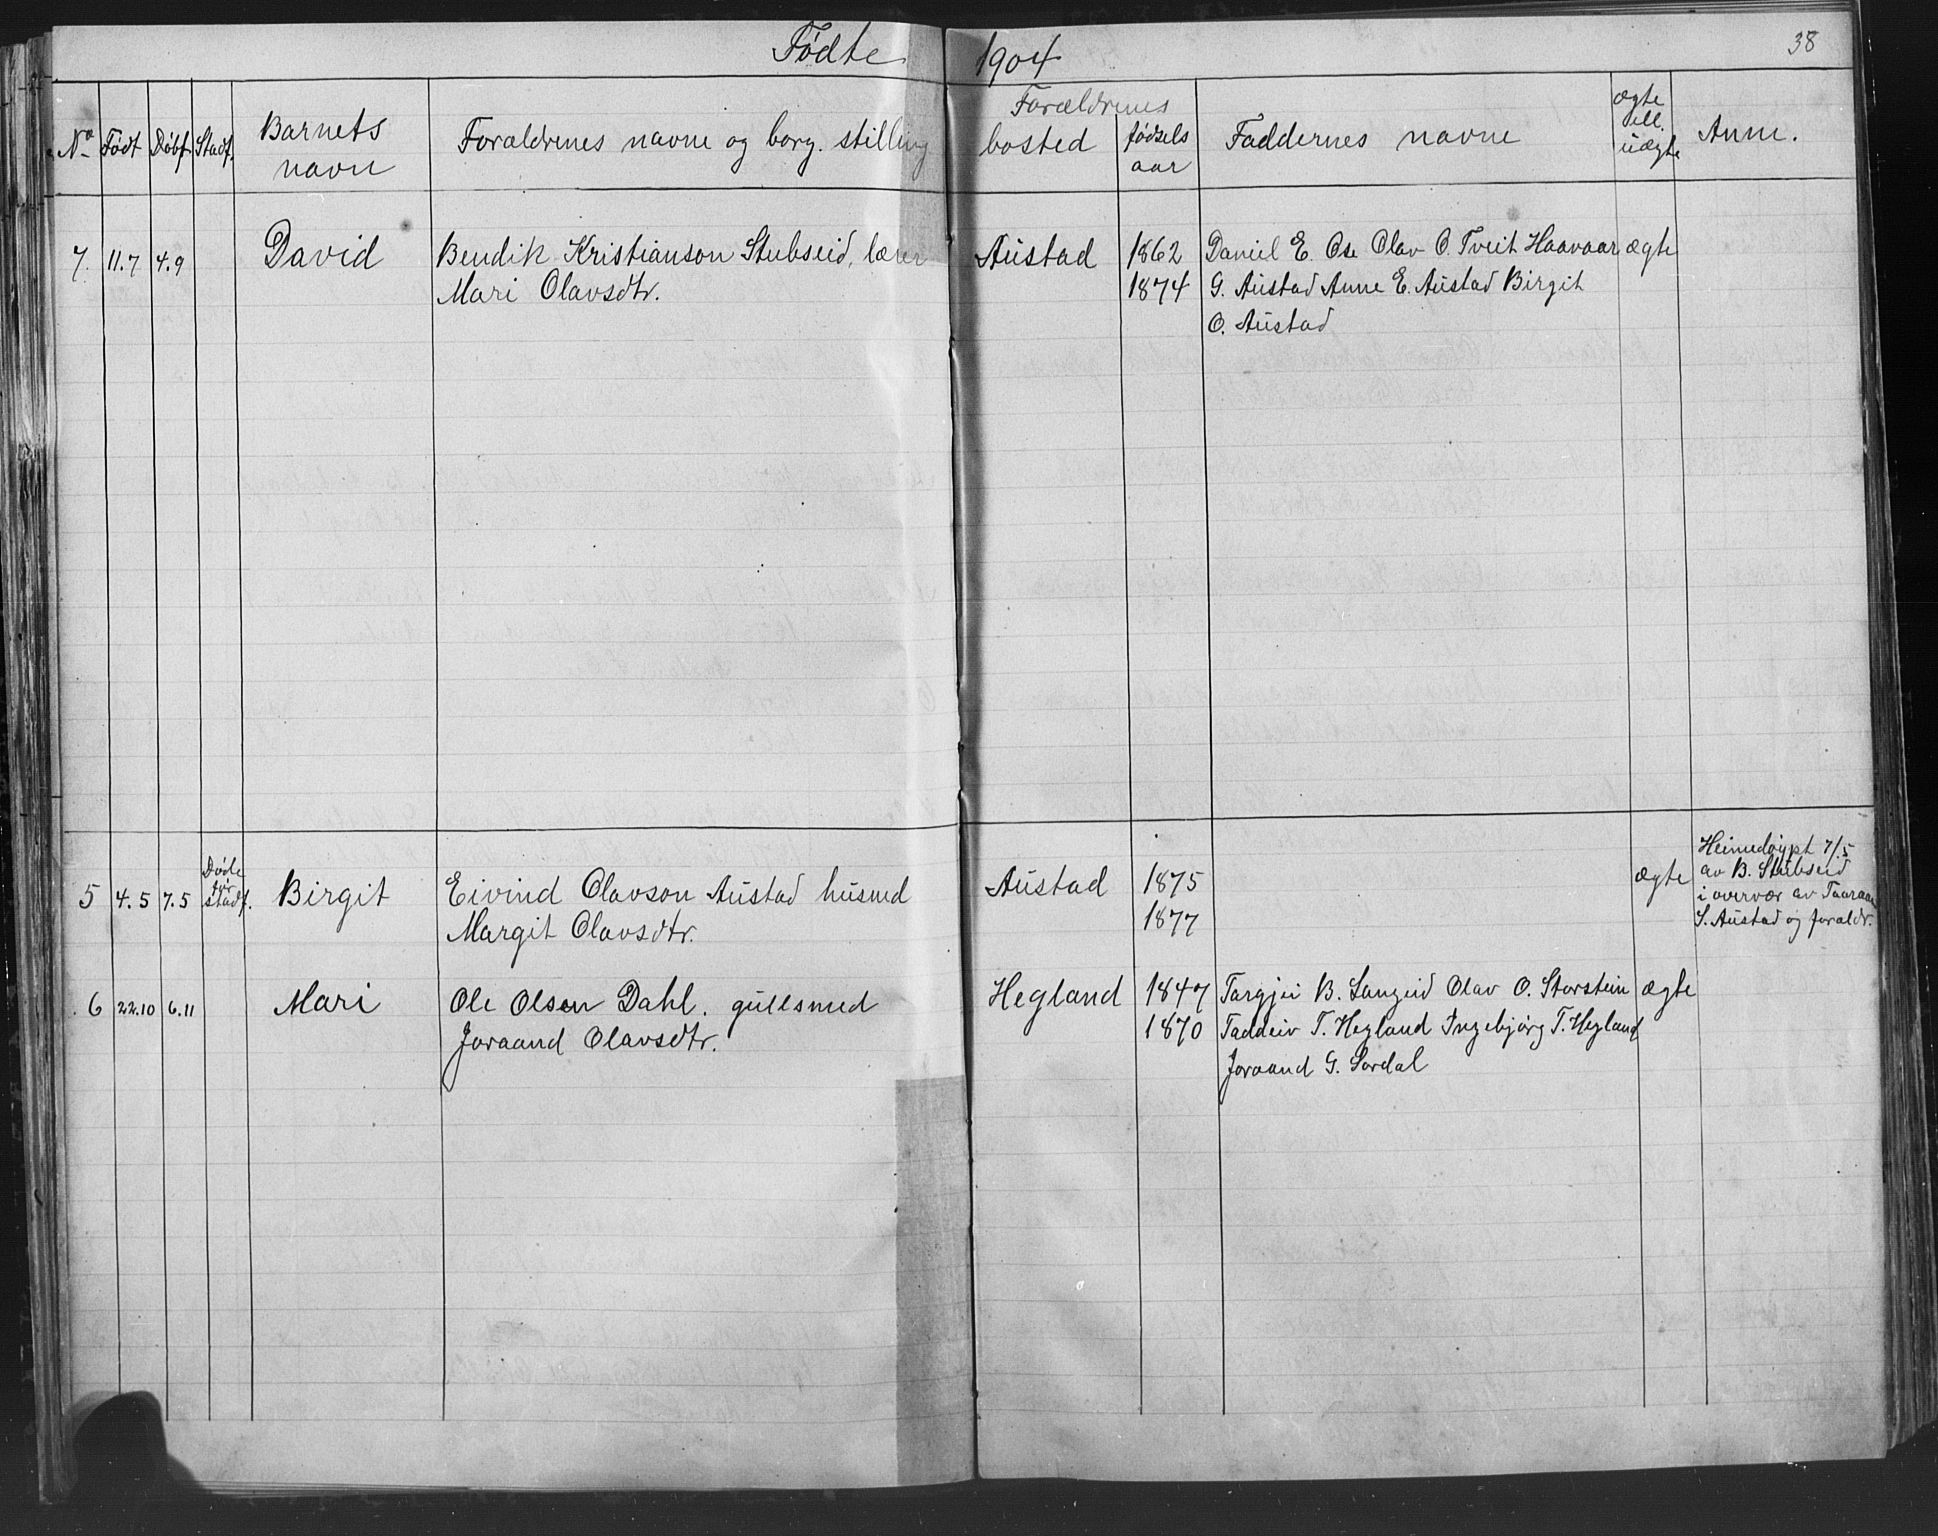 Fødte 1904
38
No Født Døbt Stadf. Barnets navn Foraldrenes navne og borg. stilling Forældrenes bosted fødsels aar Faddernes navne ægte ell. uægte Anm.
7. 11.7 4.9 David Bendik Kristianson Stubseid, lærer Austad 1862 Daniel E. Ose Olav O. Tveit Haavaar ægte
Mari Olavsdtr. 1874 G. Austad Anne E. Austad Birgit
O. Austad
Døde før stadf.
Heimedøypt 7/5
5 4.5 7.5 Birgit Eivind Olavson Austad husmd Austad 1875 ægte av B. Stubseid
Margit Olavsdtr. 1877 i overvær av
S. Austad og foraldr.
6 22.10 6.11 Mari Ole Olsen Dahl. gullsmed Hegland 1847 Targjei B. Langeid Olav O. Storstein ægte
Joraand Olavsdtr. 1870 Taddeiv T. Hegland Ingebjørg T. Hegland
Joraand G. Sordal